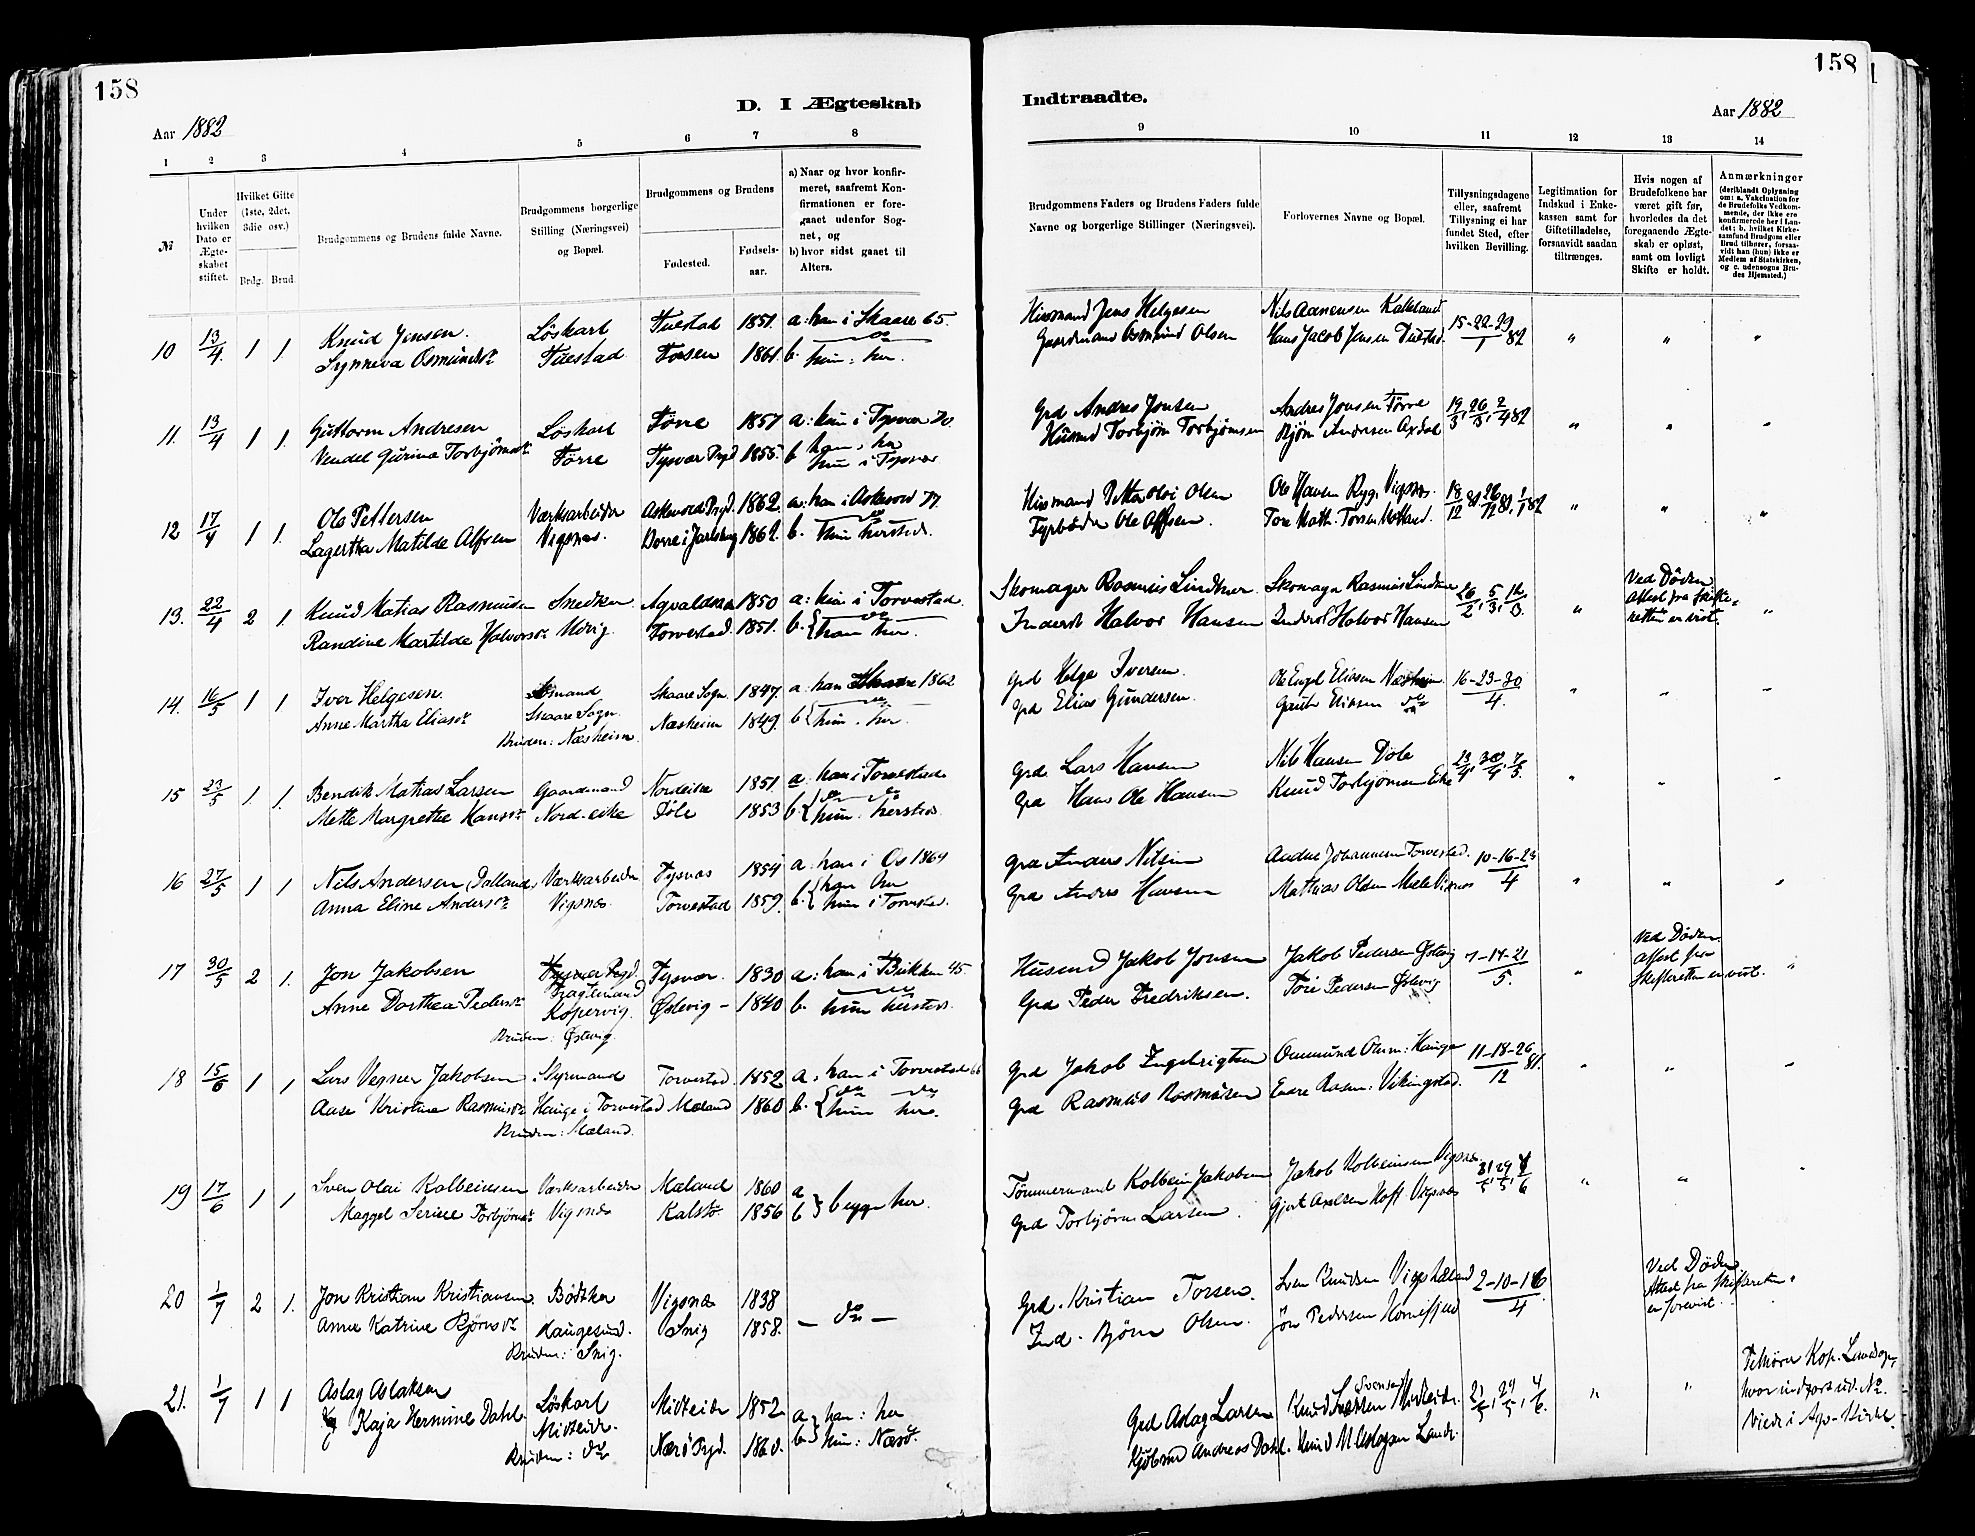 158
158
D. I Ægteskab
Indtraadte.
Aar 1882
Aar 1882
1 2 3 4 5 6 7 8 9 10 11 12 13 14
№
Under hvilken Dato er Ægteskabet stiftet.
Hvilket Gifte (1ste, 2det, 3die osv.)
Brdg. Brud.
Brudgommens og Brudens fulde Navne.
Brudgommens borgerlige Stilling (Næringsvei) og Bopæl.
Brudgommens og Brudens
Fødested.
Fødselsaar.
a) Naar og hvor konfirmeret, saafremt Konfirmationen er foregaaet udenfor Sognet, og
b) hvor sidst gaaet til Alters.
Brudgommens Faders og Brudens Faders fulde Navne og borgerlige Stillinger (Næringsvei).
Forlovernes Navne og Bopæl.
Tillysningsdagene eller, saafremt Tillysning ei har fundet Sted, efter hvilken Bevilling.
Legitimation for Indskud i Enkekassen samt for Giftetilladelse, forsaavidt saadan tiltrænges.
Hvis nogen af Brudefolkene har været gift før, hvorledes da det foregaaende Ægteskab er opløst, samt om lovligt Skifte er holdt.
Anmærkninger (deriblandt Oplysning om: a. Vakcination for de Brudefolks Vedkommende, der ikke ere konfirmerede her i Landet; b. hvilket Kirkesamfund Brudgom eller Brud tilhører, forsaavidt han (hun) ikke er Medlem af Statskirken, og c. udensogns Brudes Hjemsted.)
10 13/4. 1 1 Knud Jensen. Löskarl Fuestad 1851. a: han i Skaare 65. Husmand Jens Helgesen Nils Aanensen Kalleland 15-22-29
Synneva Osmundsdr Fuestad Forsen 1861. b. hun: her. Gaardmand Osmund Olsen Hans Jacob Jensen Fuestad 1 82 " " "
11. 13/4 1 1. Guttorm Andresen Löskarl Förre 1857 a: hun i Tysvær 70. Grd Andres Jonsen Andres Jonsen Førre 19/3, 26/3, 2/4 82
Vendel Gurina Torbjörnsdr Førre Tysvær Prgd 1855. b han: her Husmd Torbjörn Torbjörnsen Björn Andersen Axdal " " "
hun i Tysvær
12 17/4 1 1. Ole Pettersen Værksarbeider Askevold Prgd. 1862. a: han i Askevold 77. Husmand Petter Olai Olsen Ole Hansen Ryg, Vigsnæs. 18/12 81, 26/12 81, 1/1 82
Lagertha Matilde Alfsen Vigsnæs. Borre i Jarlsberg 1862. b. hun hersteds. Fyrbøder Ole Alfsen. Tore Math. Torsen " " "
13. 22/4 2 1. Knud Matias Rasmusen Snedker Avaldsnæs 1850 a: hun i Torvestad. Skomager Rasmus Lindtner. Skomager Rasmus Lindtner 26/2, 5/3, 12/3 Ved Døden
Randine Martilde Halvorsdr Hörig. Torvestad. 1851. b. han her. Inderst Halvor Hansen Inderst Halvor Hansen " Attest fra Skifteretten er vist. "
14. 16/5 1 1 Iver Helgesen Skaare Sogn 1847. a: han Skaare 1862 Grd Helge Iversen Ole Engel Eliasen Næsheim 16-23-30
Anne Martha Eliasdr Skaare Sogn. Næsheim 1849. b hun. her. Grd Elias Gundersen. Gaute Eliasen do 4. " " "
Bruden: Næsheim.
15 23/5 1. 1. Bendik Matias Larsen Gaardmand Nordeike 1851. a: han i Torvestad Grd. Lars Hansen Nils Hansen Döle 23/4, 30/4, 7/5
Mette Margrethe Hansdr Nord-eike Döle 1853 b. hun. hersteds. Grd Hans Ole Hansen Knud Torbjörnsen Eike " " "
16 27/5 1 1 Nils Andersen (Dalland) Værksarbeider Tysvær 1854 a: han i Os 1869 Grd Anders Nilsen Johannesen Torvestad. 10-16-23
Anna Eline Andersdr Vigsnæs. Torvestad 1859. b. han her hun i Torvestad. Grd Anders Hansen Mathias Olsen Mæle Vigsnæs 4 " " "
17 30/5 2 1. Jon Jakobsen Tysvær Prgd. Tysvær. 1830 a: han i Bukken 45. Husmd Jakob Jonsen Jakob Pedersen Østevig 7-14-21 Ved Døden.
Anne Dorthea Pedersdr Fragtemand Kopervig. Østevig 1840 b. hun hersteds. Grd Peder Fredriksen. Tore Pedersen Østevig 5. " Attest fra Skifteretten er vist. "
Bruden: Østevig.
18 15/6 1 1 Lars Vegner Jakobsen Styrmand Torvestad 1852 a. han i Torvestad 66 Grd Jakob Ingebrigtsen Ommund Olsen: Hauge 11-18-26
Aase Kristine Rasmusdr Hauge i Torvestad Mæland 1860 b. hun her. Grd Rasmus Rasmusen Endre Rasm: Vikingstad. 12 81. " " "
Bruden: Mæland.
19 17/6 1 1 Sven Olai Kolbeinsen Værksarbeider Mæland 1860 a Tömmermand Kolbein Jakobsen Jakob Kolbeinsen Vigsnæs.
Maggel Serine Torbjörnsdr Vigsnæs Kalstø 1856 b begge her. Grd Torbjörn Larsen. Gjert Axelsen Hoft Vigsnæs " "
20 1/7 2 1. Jon Kristian Kristiansen. Bödtker Vigsnæs 1838 Grd. Kristian Torsen. Sven Knudsen Vigsnæs 2-10-16 Ved Döden
Anne Katrine Björnsdr Haugesund. Snig 1858. — do — Ind. Björn Olsen. Jön Pedersen 4 Attest fra Skifteretten er forevist.
Bruden: Snig.
21. 1/7 1 1 Aslag Aslaksen Löskarl Midteide 1852 a han: her Grd Aslag Larsen Knud Svensen Midteide. 21/5, 29/5, 4/6.
Kaja Hermine Dahl. Midteide. Nærö Prgd. 1860. b hun: Nærö. Kjöbmd Andreas Dahl. " "
Bruden: do